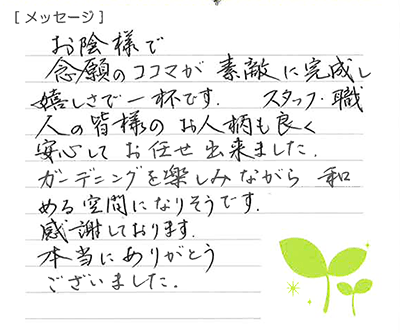 [メッセージ]
お陰様で
念願のココマが 素敵に完成し
嬉しさで一杯です. スタッフ・職
人の皆様の お人柄も良く
安心して お任せ出来ました.
ガーデニングを楽しみながら 和
める空間になりそうです.
感謝しております.
本当にありがとう
ございました.